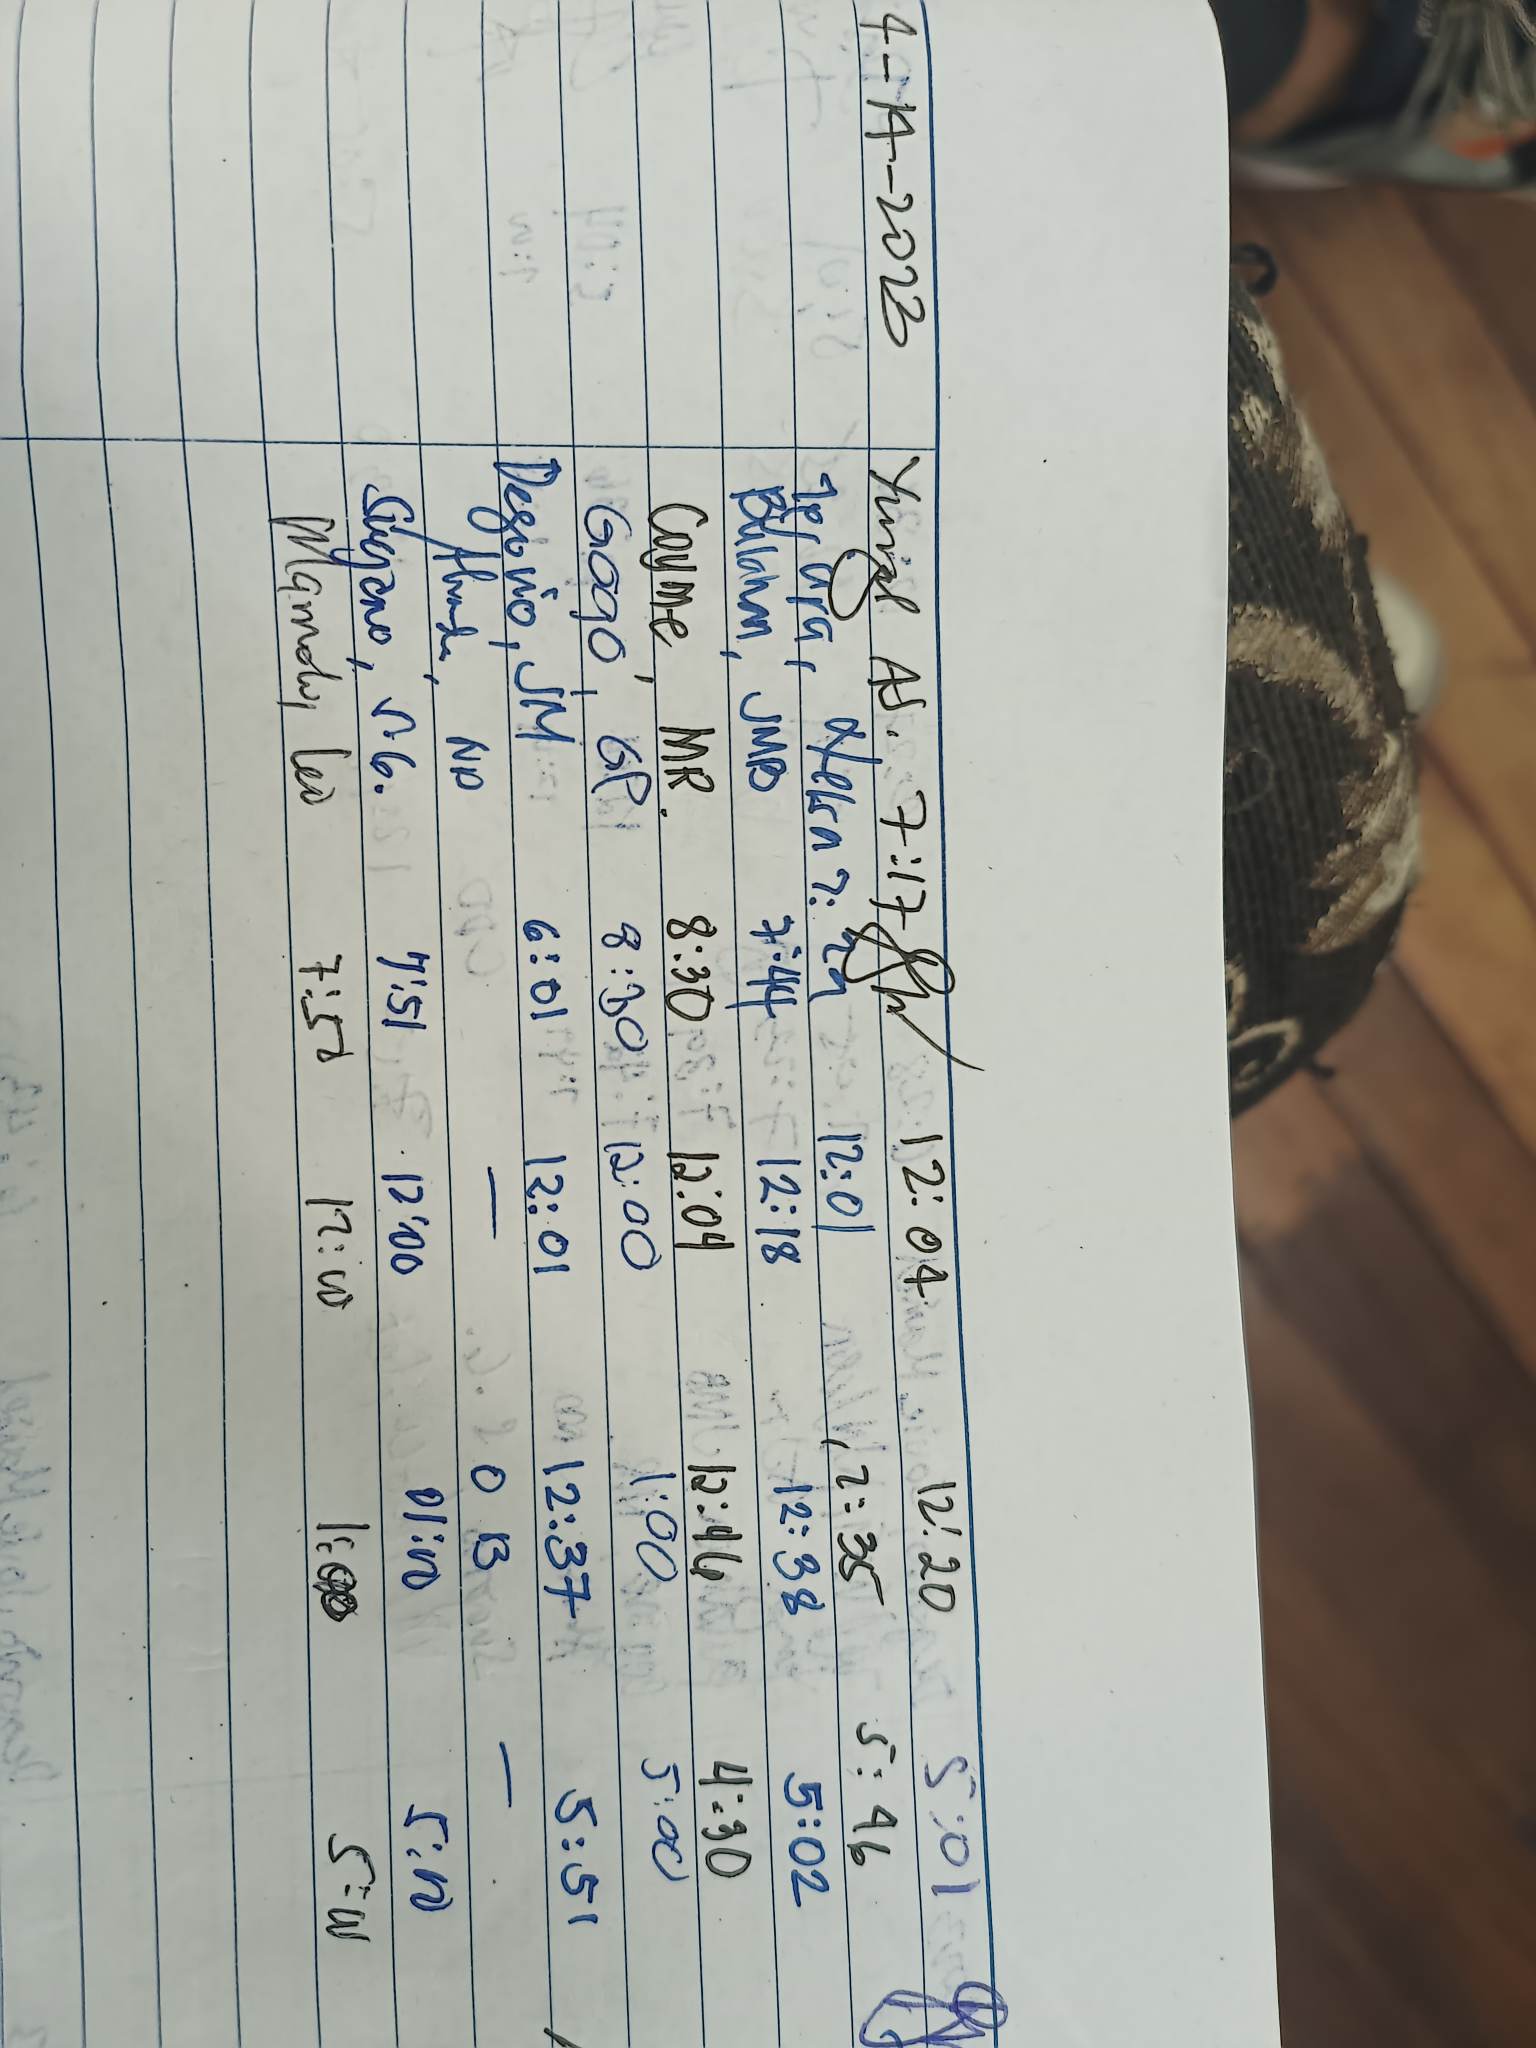 4-14-2023 Yungal AS. 7:17 12:04 12:20 5:01
7:29 12:01 12:35 5:46
Bulahan, JMB 7:44 12:18 12:38 5:02
Cayme MR. 8:30 12:04 12:46 4:30
Gogo, GP 8:30 12:00 1:00 5:00
Degorio, JM 6:01 12:01 12:37 5:51
ND — O B —
7:51 12:00 01:00 5:00
Leo 7:50 12:00 1:00 5:00